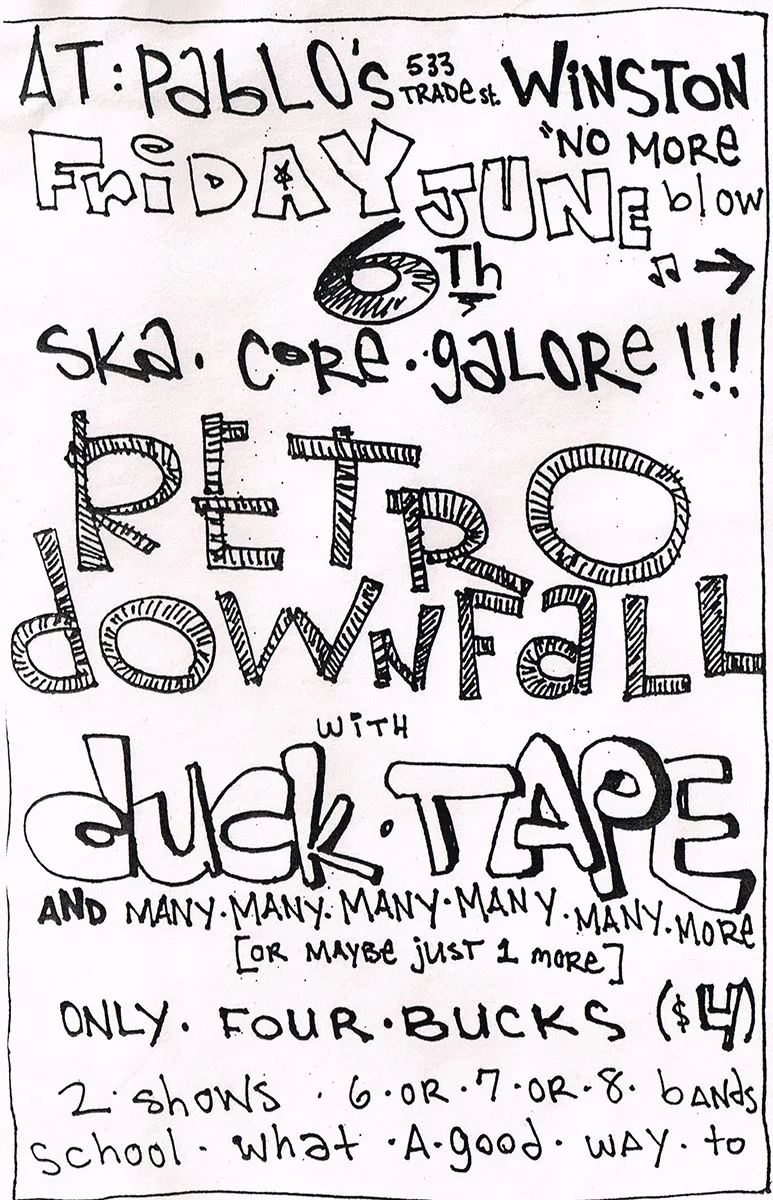 AT: PabLO's 533 TRADE st. WINSTON
"NO MORE
FriDAY JUNE blow
6Th ♫ →
SKa. CORE. gaLORe !!!
RETRO
dOWNFaLL
WiTH
duck.TAPE
AND MANY.MANY.MANY.MANY.MANY.MORe
[OR MAYBE JUST 1 MORE]
ONLY. FOUR.BUCKS ($4)
2 shows . 6.OR.7.OR.8. bANds
School. what .A.good. WAY. to